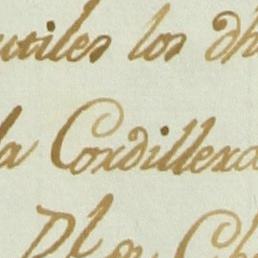 utiles los dh
la Cordillera